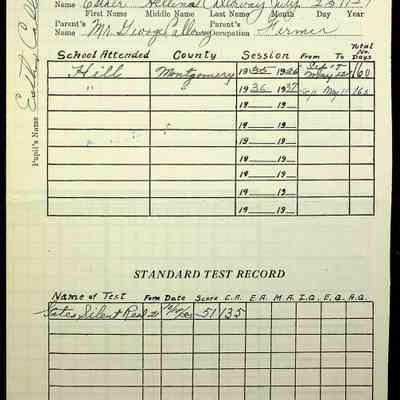 Name Esther Hellena Calloway July 23 1927
First Name Middle Name Last Name Month Day Year
Parent's Name Mr George Calloway Parent's Occupation Farmer
Pupil's Name Esther
School Attended County Session From To Total No. Days
Hill Montgomery 1935 1936 Sept 9 May 160
" 1936 1937 May 160
19 19
19 19
19 19
19 19
19 19
19 19
STANDARD TEST RECORD
Name of Test Form Date Score C.A. E.A. M.A. I.Q. E.Q. A.Q.
Gates Silent Read 2 51 135